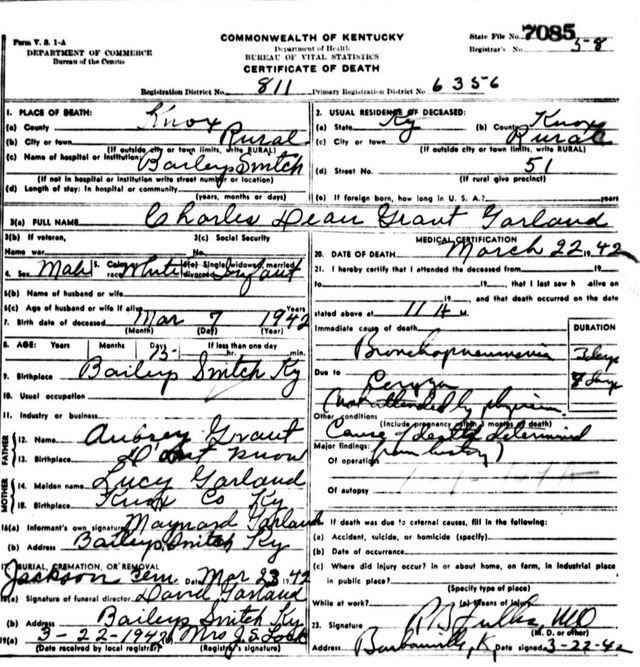 Form V. S. 1-A
DEPARTMENT OF COMMERCE
Bureau of the Census
COMMONWEALTH OF KENTUCKY
Department of Health
BUREAU OF VITAL STATISTICS
CERTIFICATE OF DEATH
State File No. 7085
Registrar's No. 58
Registration District No. 811 Primary Registration District No. 6356
1. PLACE OF DEATH:
(a) County Knox
(b) City or town Rural
(If outside city or town limits, write RURAL)
(c) Name of hospital or institution Baileys Switch
(If not in hospital or institution write street number or location)
(d) Length of stay: In hospital or community
(years, months or days)
2. USUAL RESIDENCE OF DECEASED:
(a) State Ky (b) County Knox
(c) City or town Rural
(If outside city or town limits, write RURAL)
(d) Street No. 51
(If rural give precinct)
(e) If foreign born, how long in U. S. A.? years
3(a) FULL NAME Charles Dean Grant Garland
3(b) If veteran,
Name war
3(c) Social Security
No.
4. Sex Male 5. Color or race White 6(a) Single, widowed, married, divorced Infant
6(b) Name of husband or wife
6(c) Age of husband or wife if alive Years
7. Birth date of deceased Mar 7 1942
(Month) (Day) (Year)
8. AGE: Years Months Days 15 If less than one day
hr. min.
9. Birthplace Baileys Switch Ky
10. Usual occupation
11. Industry or business
FATHER
12. Name Aubrey Grant
13. Birthplace Dont know
MOTHER
14. Maiden name Lucy Garland
15. Birthplace Knox Co Ky
16(a) Informant's own signature Maynard Garland
(b) Address Baileys Switch Ky
17. BURIAL, CREMATION, OR REMOVAL
Jackson Cem. Date Mar 23 1942
18(a) Signature of funeral director David Garland
(b) Address Baileys Switch Ky
19(a) 3-22-1942 Mrs J. S. Lock
(Date received by local registrar) (Registrar's signature)
MEDICAL CERTIFICATION
20. DATE OF DEATH March 22 1942
21. I hereby certify that I attended the deceased from 19
to 19 , that I last saw h alive on
19 , and that death occurred on the date
stated above at 11 A M.
Immediate cause of death DURATION
Bronchopneumonia 3 days
Due to Coryza 8 days
(Not attended by physician
Other conditions
(Include pregnancy within 3 months of death)
Cause of death determined
Major findings: from history)
Of operation
Of autopsy
22. If death was due to external causes, fill in the following:
(a) Accident, suicide, or homicide (specify)
(b) Date of occurrence
(c) Where did injury occur? in or about home, on farm, in industrial place
in public place?
(Specify type of place)
While at work? (e) Means of injury
23. Signature MD
(M. D. or other)
Address Barbourville, K Date signed 3-22-42